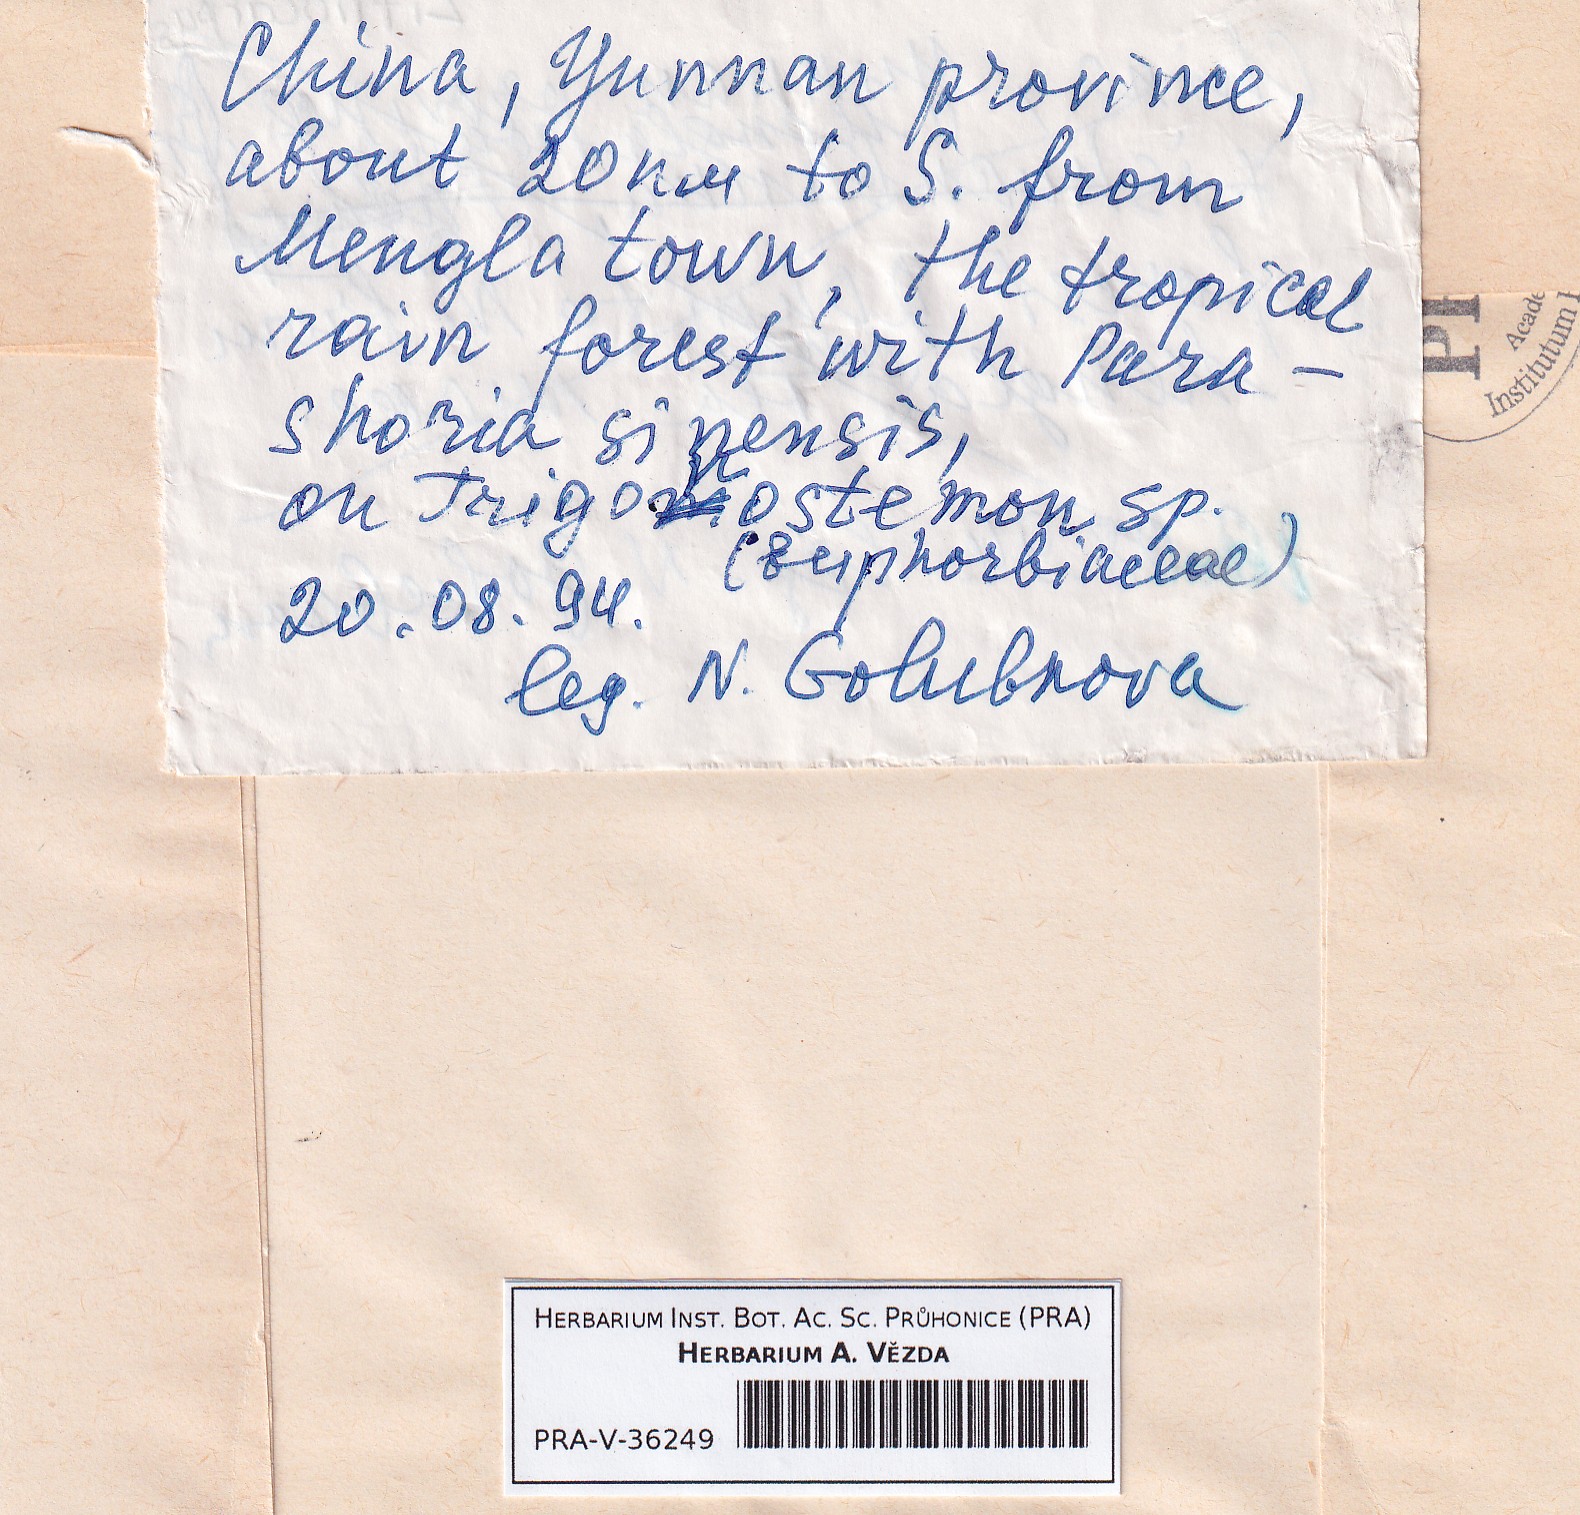 China, Yunnan province,
about 20 км to S. from
Mengla town, the tropical
rain forest with Para-
shoria sinensis,
on Trigonostemon sp.
(Euphorbiaceae)
20.08.94.
leg. N. Golubkova
Acade
Institutum
HERBARIUM INST. BOT. AC. SC. PRŮHONICE (PRA)
HERBARIUM A. VĚZDA
PRA-V-36249